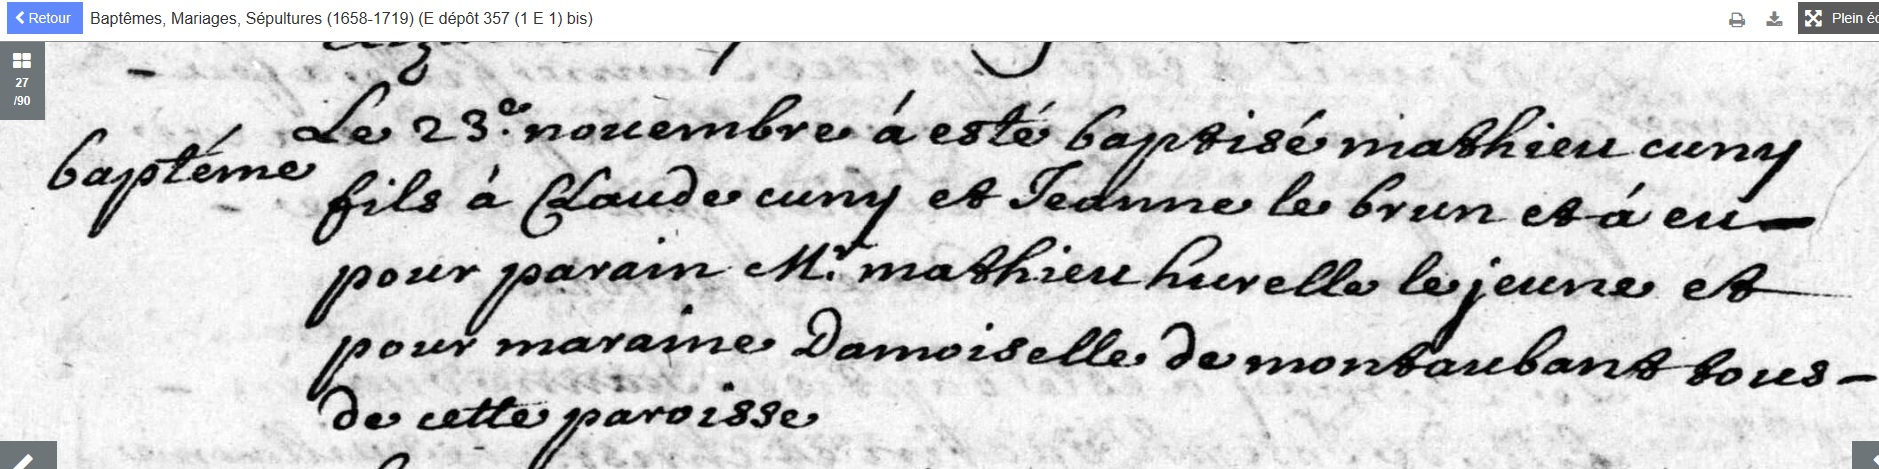 Retour
Baptêmes, Mariages, Sépultures (1658-1719) (E dépôt 357 (1 E 1) bis)
Plein éc
27
/90
baptéme
Le 23.e nouembre á esté baptisé mathieu cuny
fils à Claude cuny et Jeanne le brun et á eu
pour parain Mr. mathieu hurelle le jeune et
pour maraine Damoiselle de montaubant tous
de cette paroisse